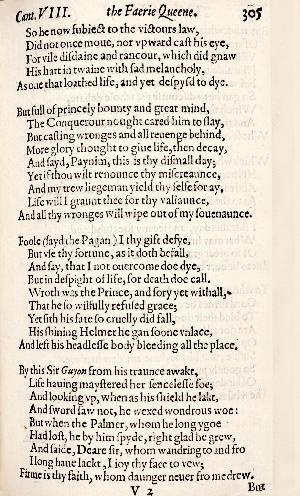 Cant. VIII. the Faerie Queene. 305
So he now subiect to the victours law,
Did not once moue, nor vpward cast his eye,
For vile disdaine and rancour, which did gnaw
His hart in twaine with sad melancholy,
As one that loathed life, and yet despysd to dye.
But full of princely bounty and great mind,
The Conquerour nought cared him to slay,
But casting wronges and all reuenge behind,
More glory thought to giue life, then decay,
And sayd, Paynim, this is thy dismall day;
Yet if thou wilt renounce thy miscreaunce,
And my trew liegeman yield thy selfe for ay,
Life will I graunt thee for thy valiaunce,
And all thy wronges will wipe out of my souenaunce.
Foole (sayd the Pagan) I thy gift defye,
But vse thy fortune, as it doth befall,
And say, that I not ouercome doe dye,
But in despight of life, for death doe call.
Wroth was the Prince, and sory yet withall,
That he so wilfully refused grace;
Yet sith his fate so cruelly did fall,
His shining Helmet he gan soone vnlace,
And left his headlesse body bleeding all the place.
By this Sir Guyon from his traunce awakt,
Life hauing maystered her sencelesse foe;
And looking vp, when as his shield he lakt,
And sword saw not, he wexed wondrous woe:
But when the Palmer, whom he long ygoe
Had lost, he by him spyde, right glad he grew,
And saide, Deare sir, whom wandring to and fro
I long haue lackt, I ioy thy face to vew;
Firme is thy faith, whom daunger neuer fro me drew.
V 2 But